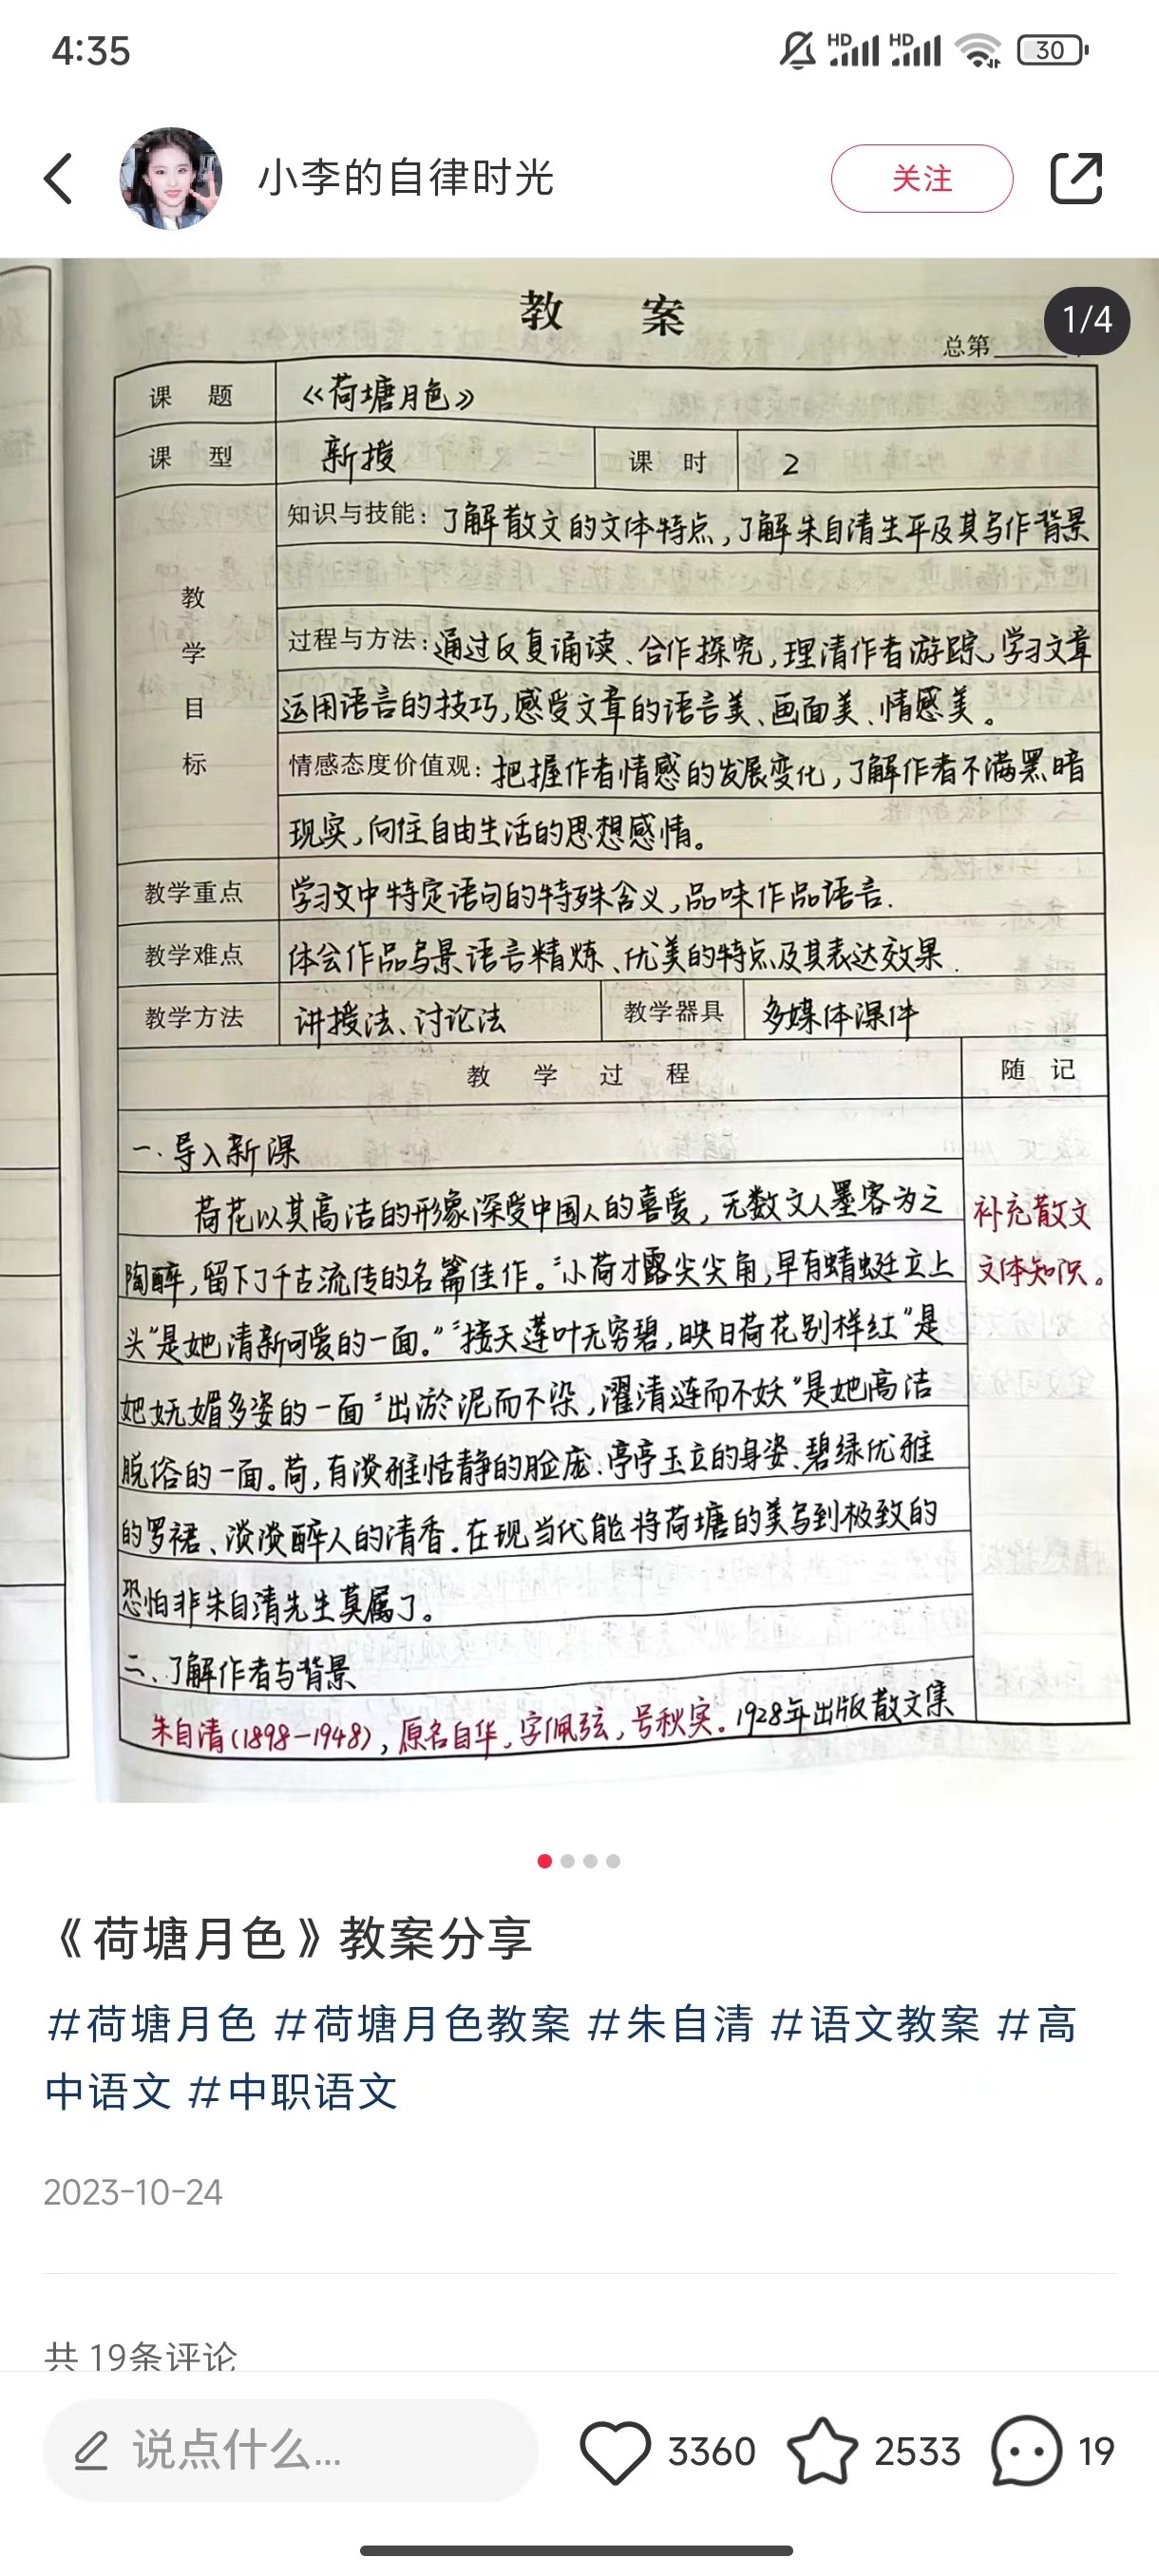 4:35
HD HD 30
小李的自律时光
关注
教 案
1/4
总第
课 题 《荷塘月色》
课 型 新授 课 时 2
教学目标
知识与技能：了解散文的文体特点，了解朱自清生平及其写作背景
过程与方法：通过反复诵读、合作探究，理清作者游踪，学习文章
运用语言的技巧，感受文章的语言美、画面美、情感美。
情感态度价值观：把握作者情感的发展变化，了解作者不满黑暗
现实，向往自由生活的思想感情。
教学重点 学习文中特定语句的特殊含义，品味作品语言.
教学难点 体会作品写景语言精炼、优美的特点及其表达效果.
教学方法 讲授法、讨论法 教学器具 多媒体课件
教 学 过 程 随 记
一.导入新课
荷花以其高洁的形象深受中国人的喜爱，无数文人墨客为之
补充散文
陶醉，留下了千古流传的名篇佳作。“小荷才露尖尖角，早有蜻蜓立上
文体知识。
头”是她清新可爱的一面。”“接天莲叶无穷碧，映日荷花别样红”是
她妩媚多姿的一面“出淤泥而不染，濯清涟而不妖”是她高洁
脱俗的一面。荷，有淡雅恬静的脸庞、亭亭玉立的身姿、碧绿优雅
的罗裙、淡淡醉人的清香.在现当代能将荷塘的美写到极致的
恐怕非朱自清先生莫属了。
二、了解作者与背景
朱自清(1898-1948)，原名自华，字佩弦，号秋实。1928年出版散文集
《荷塘月色》教案分享
#荷塘月色 #荷塘月色教案 #朱自清 #语文教案 #高
中语文 #中职语文
2023-10-24
共 19条评论
说点什么... 3360 2533 19